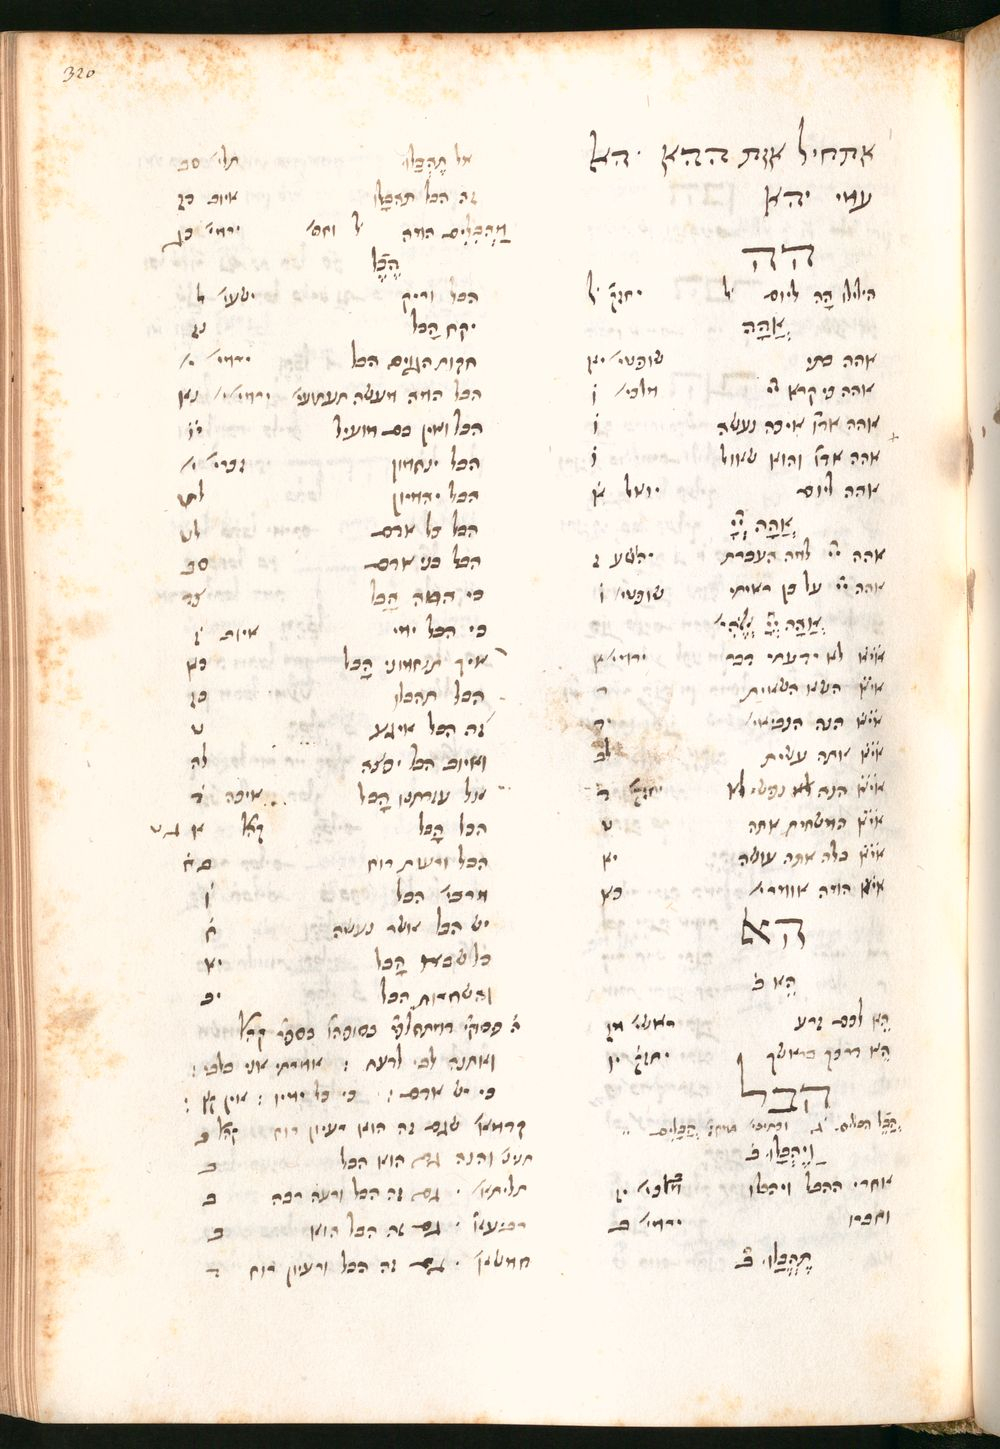 320
אתחיל אות ההא · הא
עמי יהא
הה
הילילו הָהּ ליום ל' יחזק' ל'
אֲהָהּ
אהה בתי שופטי' יא
אהה כי קרא יי' מלכי' ו
אהה אדו' איכה נעשה ו
אהה אדו' והוא שאול ו
אהה ליום יואל א
אֲהָהּ יי'
אהה יי' למה העברת יהשע ז
אהה יי' על כן ראיתי שופטי' ו
אֲהָהּ יי' אלהי'
איא לא ידעתי דבר ירמי' א
איא השא השאית ד
איא הנה הנביאי' יד
איא אתה עשית לב
איא הנה לא נפשי לא יחזק' ד
איא המשחית אתה ט
איא כלה אתה עושה יא
איא המה אומרי' כא
הא
הֵא ב
הֵא לכם זרע ראשי' מז
הֵא דרכך בראשך יחזק' יו
הבל
וַיֶּהְבָּלוּ ב
אחרי ההבל ויהבלו מלכי' יז
וחברו ירמי' ב
תֶּהְבָּלוּ ב
אל תֶהְבָּלוּ תלי' סב
זה הבל תהבָּלו איוב כז
מַהְבִּלִים המה ל' וחס' ירמי' כג
הֶבֶל
הבל וריק ישעי' ל
יקח הָבל נז
חקות הגוים הבל ירמי' י
הבל המה מעשה תעתועי' ירמי' י נא
הבל ואין בם מועיל יו
הבל ינחמון זכרי' י
הבל יהמיון לט
הבל כל אדם לט
הבל בני אדם סב
כי המה הָבל צד
כי הבל ימי איוב ז
איך תנחמוני הָבל כא
הבל תהבלו כז
זה הבל איגע ט
ואיוב הבל יפצה לה
אל עזרתנו הָבל איכה ד
הבל הָבל קהל' א
הבל ורעות רוח
מרבי' הבל ו
יש הבל אשר נעשה ח
כל שבא הָבל יא
והשחרות הבל יב
ואתנה לבי לדעת : אמרתי אני בלבי :
כי יש אדם : כי כל ימיו : אין קץ :
קדמא' שגם זה הוא רעיון רוח קהל' ב
תני' והנה גם הוא הבל ב
תלית' · גם זה הבל ורעה רבה ב
רביעא' · גם זה הבל הוא ב
חמשא' · גם זה הבל ורעיון רוח ד